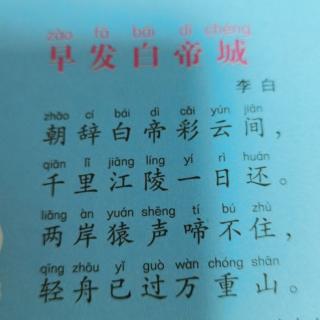 zǎo fā bái dì chéng
早发白帝城
李白
zhāo cí bái dì cǎi yún jiān
朝辞白帝彩云间，
qiān lǐ jiāng líng yí rì huán
千里江陵一日还。
liǎng àn yuán shēng tí bú zhù
两岸猿声啼不住，
qīng zhōu yǐ guò wàn chóng shān
轻舟已过万重山。